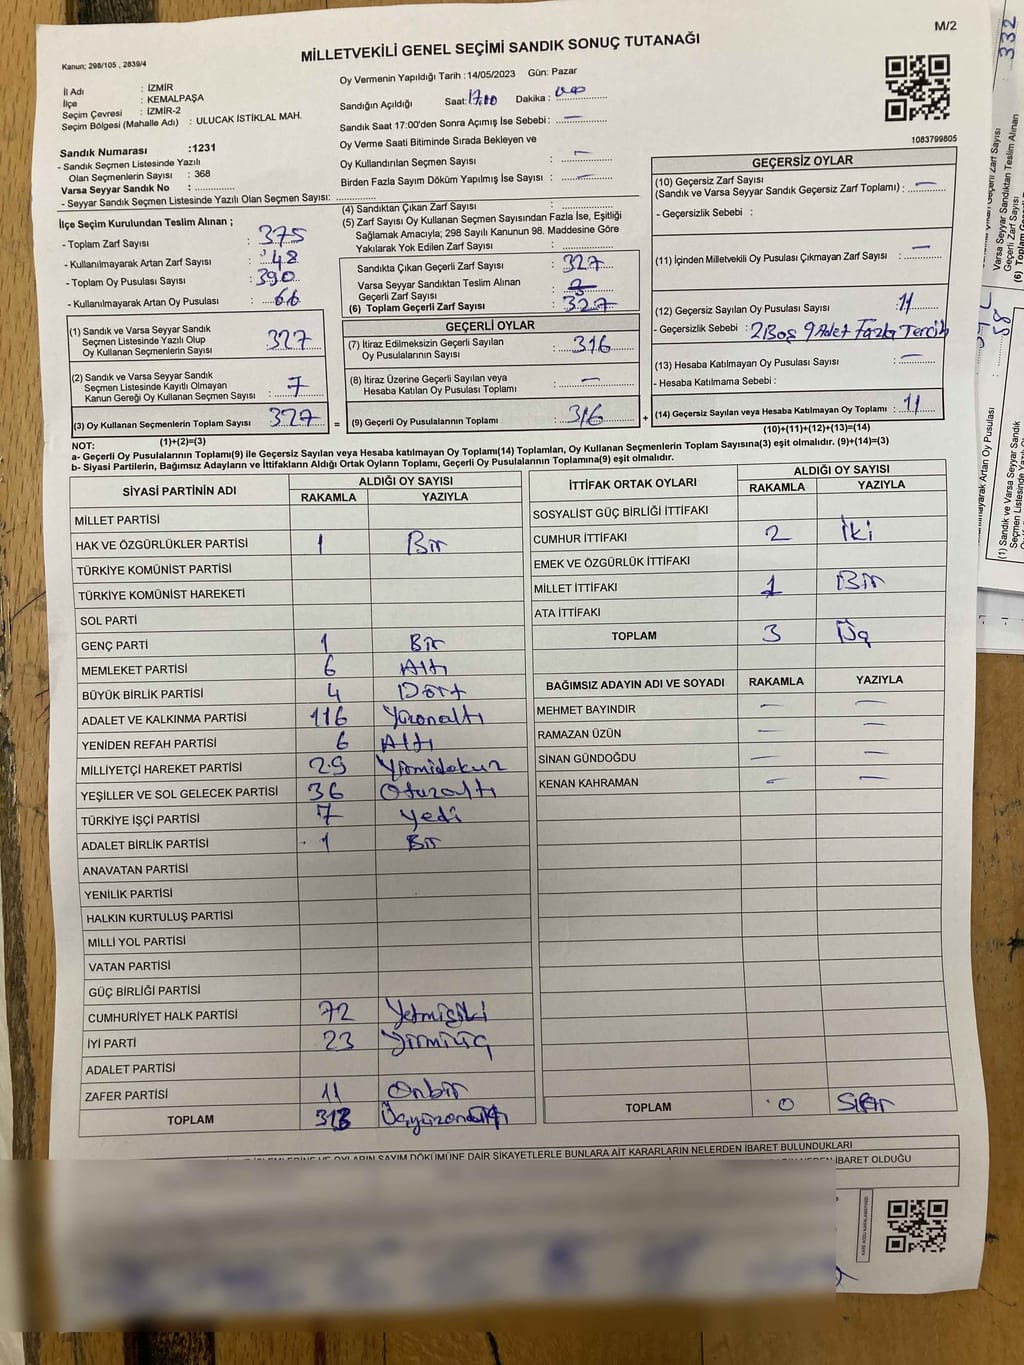 M/2
MİLLETVEKİLİ GENEL SEÇİMİ SANDIK SONUÇ TUTANAĞI
Kanun; 298/105 , 2839/4
İl Adı : İZMİR
İlçe : KEMALPAŞA
Seçim Çevresi : İZMİR-2
Seçim Bölgesi (Mahalle Adı) : ULUCAK İSTİKLAL MAH.
Sandık Numarası :1231
- Sandık Seçmen Listesinde Yazılı
Olan Seçmenlerin Sayısı : 368
Varsa Seyyar Sandık No : ............
- Seyyar Sandık Seçmen Listesinde Yazılı Olan Seçmen Sayısı: ............
Oy Vermenin Yapıldığı Tarih :14/05/2023 Gün: Pazar
Sandığın Açıldığı Saat: 17.00 Dakika :
Sandık Saat 17:00'den Sonra Açımış İse Sebebi : —
Oy Verme Saati Bitiminde Sırada Bekleyen ve
Oy Kullandırılan Seçmen Sayısı : —
Birden Fazla Sayım Döküm Yapılmış İse Sayısı : —
1083799805
İlçe Seçim Kurulundan Teslim Alınan ;
- Toplam Zarf Sayısı : 375
- Kullanılmayarak Artan Zarf Sayısı : 48
- Toplam Oy Pusulası Sayısı : 390
- Kullanılmayarak Artan Oy Pusulası : 66
(1) Sandık ve Varsa Seyyar Sandık
Seçmen Listesinde Yazılı Olup
Oy Kullanan Seçmenlerin Sayısı : 327
(2) Sandık ve Varsa Seyyar Sandık
Seçmen Listesinde Kayıtlı Olmayan
Kanun Gereği Oy Kullanan Seçmen Sayısı : 7
(3) Oy Kullanan Seçmenlerin Toplam Sayısı : 327
(1)+(2)=(3)
(4) Sandıktan Çıkan Zarf Sayısı : ............
(5) Zarf Sayısı Oy Kullanan Seçmen Sayısından Fazla İse, Eşitliği
Sağlamak Amacıyla; 298 Sayılı Kanunun 98. Maddesine Göre
Yakılarak Yok Edilen Zarf Sayısı : ............
Sandıkta Çıkan Geçerli Zarf Sayısı : 327
Varsa Seyyar Sandıktan Teslim Alınan
Geçerli Zarf Sayısı :
(6) Toplam Geçerli Zarf Sayısı : 327
GEÇERLİ OYLAR
(7) İtiraz Edilmeksizin Geçerli Sayılan
Oy Pusulalarının Sayısı : 316
(8) İtiraz Üzerine Geçerli Sayılan veya
Hesaba Katılan Oy Pusulası Toplamı : —
= (9) Geçerli Oy Pusulalarının Toplamı : 316 +
GEÇERSİZ OYLAR
(10) Geçersiz Zarf Sayısı
(Sandık ve Varsa Seyyar Sandık Geçersiz Zarf Toplamı) : —
- Geçersizlik Sebebi :
(11) İçinden Milletvekili Oy Pusulası Çıkmayan Zarf Sayısı : —
(12) Geçersiz Sayılan Oy Pusulası Sayısı : 11
- Geçersizlik Sebebi : 2 Boş 9 Adet Fazla Tercih
(13) Hesaba Katılmayan Oy Pusulası Sayısı : —
- Hesaba Katılmama Sebebi :
(14) Geçersiz Sayılan veya Hesaba Katılmayan Oy Toplamı : 11
(10)+(11)+(12)+(13)=(14)
NOT:
a- Geçerli Oy Pusulalarının Toplamı(9) ile Geçersiz Sayılan veya Hesaba katılmayan Oy Toplamı(14) Toplamları, Oy Kullanan Seçmenlerin Toplam Sayısına(3) eşit olmalıdır. (9)+(14)=(3)
b- Siyasi Partilerin, Bağımsız Adayların ve İttifakların Aldığı Ortak Oyların Toplamı, Geçerli Oy Pusulalarının Toplamına(9) eşit olmalıdır.
SİYASİ PARTİNİN ADI ALDIĞI OY SAYISI
RAKAMLA YAZIYLA
MİLLET PARTİSİ
HAK VE ÖZGÜRLÜKLER PARTİSİ 1 Bir
TÜRKİYE KOMÜNİST PARTİSİ
TÜRKİYE KOMÜNİST HAREKETİ
SOL PARTİ
GENÇ PARTİ 1 Bir
MEMLEKET PARTİSİ 6 Altı
BÜYÜK BİRLİK PARTİSİ 4 Dört
ADALET VE KALKINMA PARTİSİ 116 Yüzonaltı
YENİDEN REFAH PARTİSİ 6 Altı
MİLLİYETÇİ HAREKET PARTİSİ 29 Yirmidokuz
YEŞİLLER VE SOL GELECEK PARTİSİ 36 Otuzaltı
TÜRKİYE İŞÇİ PARTİSİ 7 Yedi
ADALET BİRLİK PARTİSİ 1 Bir
ANAVATAN PARTİSİ
YENİLİK PARTİSİ
HALKIN KURTULUŞ PARTİSİ
MİLLİ YOL PARTİSİ
VATAN PARTİSİ
GÜÇ BİRLİĞİ PARTİSİ
CUMHURİYET HALK PARTİSİ 72 Yetmişiki
İYİ PARTİ 23 Yirmiüç
ADALET PARTİSİ
ZAFER PARTİSİ 11 Onbir
TOPLAM 313
İTTİFAK ORTAK OYLARI ALDIĞI OY SAYISI
RAKAMLA YAZIYLA
SOSYALİST GÜÇ BİRLİĞİ İTTİFAKI
CUMHUR İTTİFAKI 2 İki
EMEK VE ÖZGÜRLÜK İTTİFAKI
MİLLET İTTİFAKI 1 Bir
ATA İTTİFAKI
TOPLAM 3 Üç
BAĞIMSIZ ADAYIN ADI VE SOYADI RAKAMLA YAZIYLA
MEHMET BAYINDIR — —
RAMAZAN ÜZÜN — —
SİNAN GÜNDOĞDU — —
KENAN KAHRAMAN — —
TOPLAM 0 Sıfır
OYLARIN SAYIM DÖKÜMÜNE DAİR ŞİKAYETLERLE BUNLARA AİT KARARLARIN NELERDEN İBARET BULUNDUKLARI
İBARET OLDUĞU
332